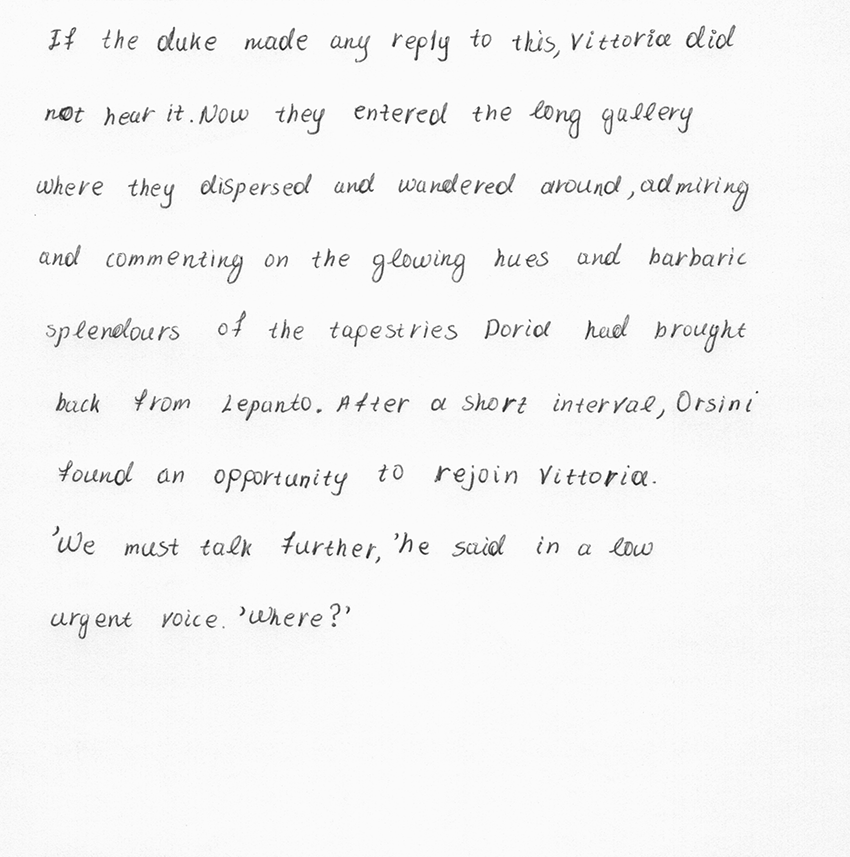 If the duke made any reply to this, Vittoria did
not hear it. Now they entered the long gallery
where they dispersed and wandered around, admiring
and commenting on the glowing hues and barbaric
splendours of the tapestries Doria had brought
back from Lepanto. After a short interval, Orsini
found an opportunity to rejoin Vittoria.
'We must talk further,' he said in a low
urgent voice. 'Where?'